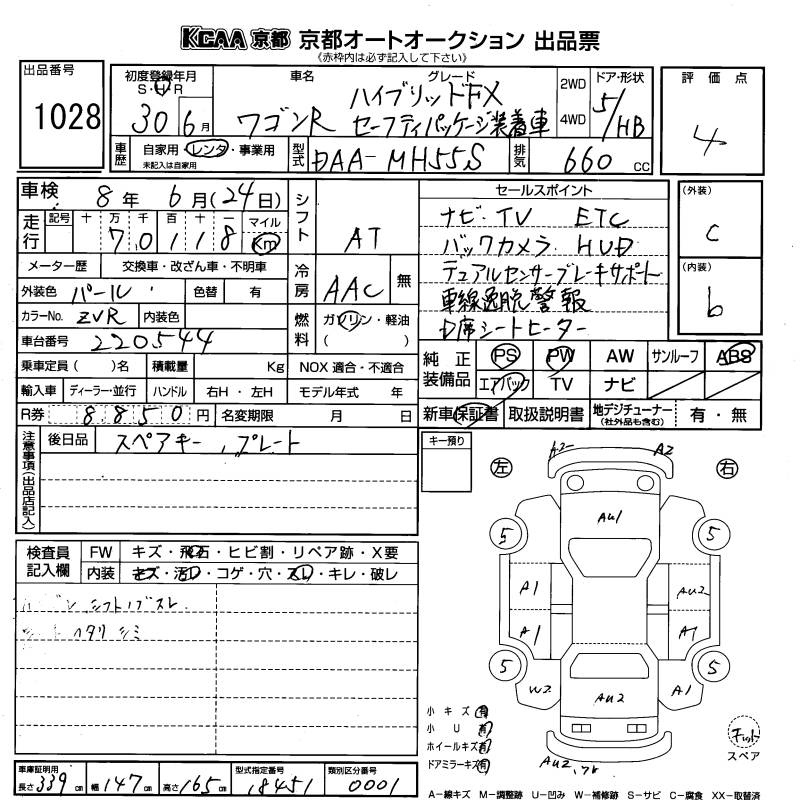 KCAA 京都 京都オートオークション 出品票
《赤枠内は必ず記入して下さい》
出品番号
1028
初度登録年月
S・H・R
30年 6月
車名
ワゴンR
グレード
ハイブリッドFX
セーフティパッケージ装着車
2WD
4WD
ドア・形状
5/HB
評価点
4
車歴
自家用・レンタ・事業用
未記入は自家用
型式
DAA-MH55S
排気
660cc
車検
8年 6月(24日)
走行
記号 十 万 千 百 十 一 マイル
7 0 1 1 8 Km
シフト
AT
セールスポイント
ナビ・TV ETC
バックカメラ HUD
デュアルセンサーブレーキサポート
車線逸脱警報
D席シートヒーター
(外装)
C
(内装)
b
メーター歴 交換車・改ざん車・不明車
外装色 パール 色替 有
カラーNo. ZVR 内装色
車台番号 220544
冷房
AAC
無
燃料
ガソリン・軽油
( )
乗車定員 ( )名 積載量 Kg NOX 適合・不適合
輸入車 ディーラー・並行 ハンドル 右H・左H モデル年式 年
R券 8850円 名変期限 月 日
純正装備品
PS PW AW サンルーフ ABS
エアバック TV ナビ
新車保証書 取扱説明書 地デジチューナー
(社外品も含む)
有・無
注意事項(出品店記入)
後日品 スペアキー,プレート
キー預り
左
右
A2 A2
AU1
5 5
A1 AU2
A1 A1
5 5
W2 AU2 A1
検査員記入欄
FW キズ・飛石・ヒビ割・リペア跡・X要
内装 キズ・汚レ・コゲ・穴・スレ・キレ・破レ
シフトノブスレ
シミ
小キズ 有
小U 有
ホイールキズ 有
ドアミラーキズ 有
スペア
車庫証明用
長さ 339cm 幅 147cm 高さ 165cm
型式指定番号
18451
類別区分番号
0001
A－線キズ M－調整跡 U－凹み W－補修跡 S－サビ C－腐食 XX－取替済